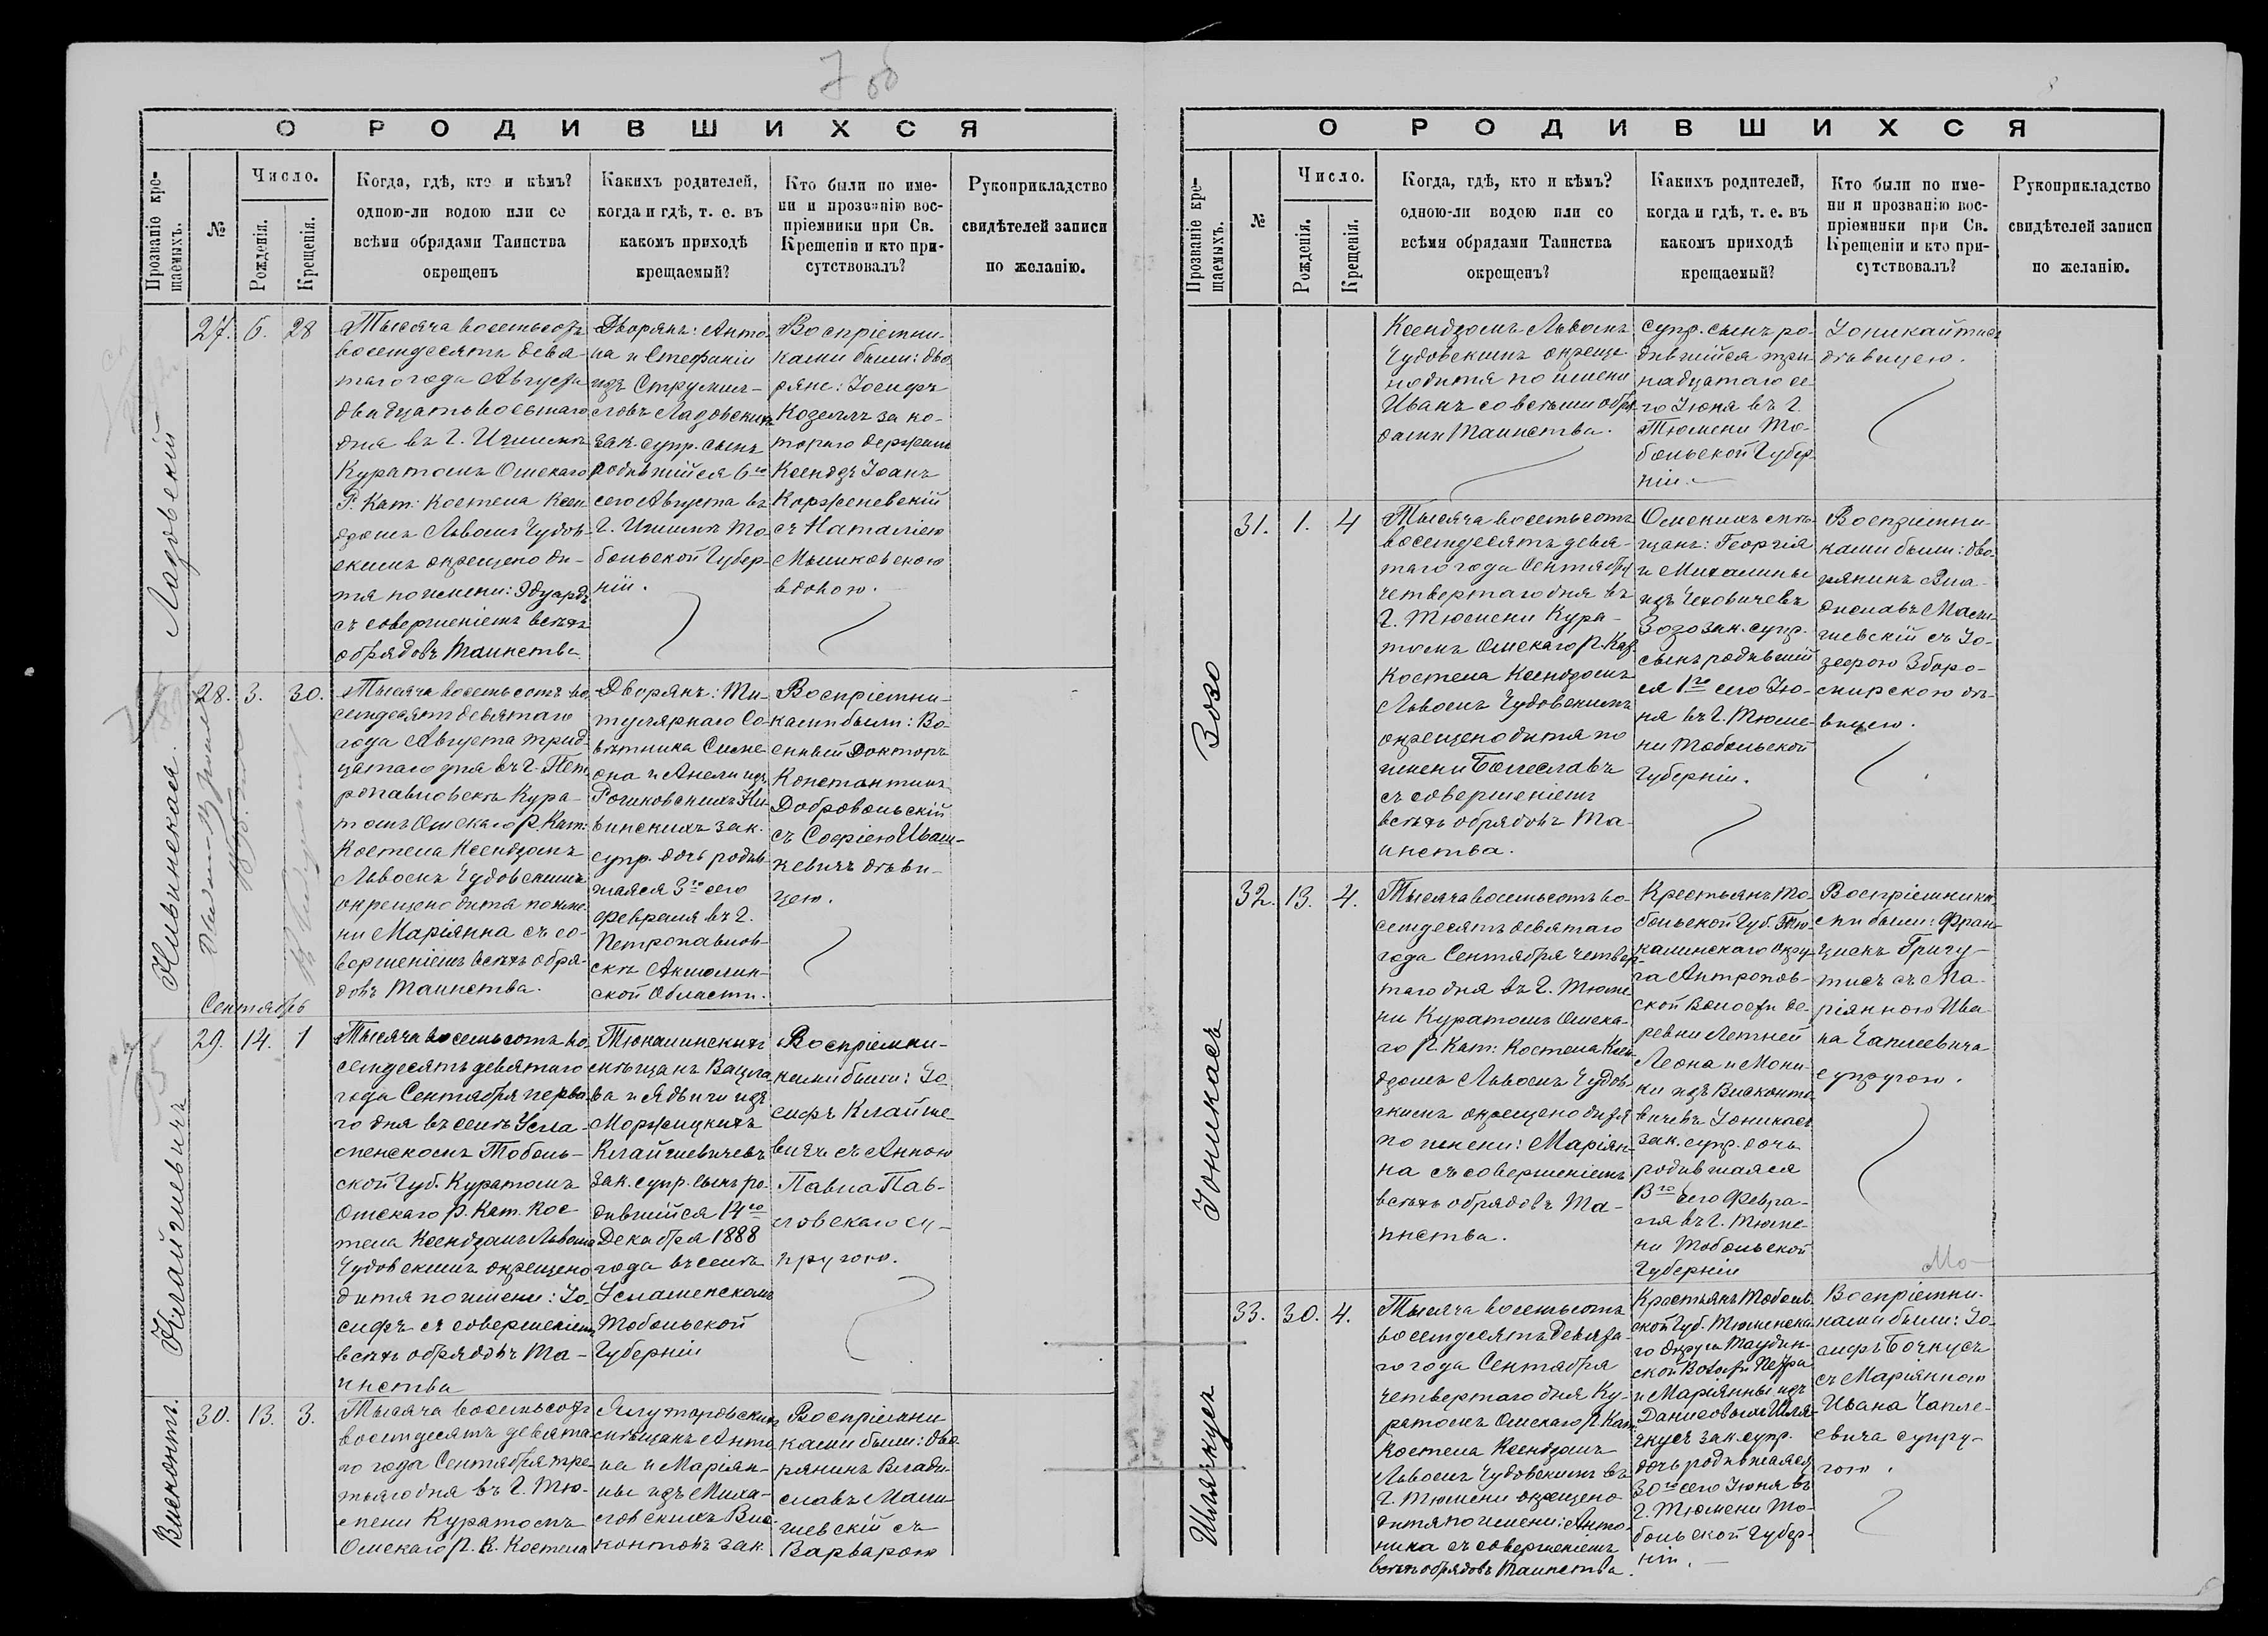 7 об
О РОДИВШИХСЯ
Прозваніе кре-
щаемыхъ.
№
Число.
Рожденія.
Крещенія.
Когда, гдѣ, кто и кѣмъ?
одною-ли водою или со
всѣми обрядами Таинства
окрещенъ
Какихъ родителей,
когда и гдѣ, т. е. въ
какомъ приходѣ
крещаемый?
Кто были по име-
ни и прозванію вос-
пріемники при Св.
Крещеніи и кто при-
сутствовалъ?
Рукоприкладство
свидѣтелей записи
по желанію.
Ладовскій
27. 6. 28
Тысяча восемьсотъ
восемдесятъ девя-
таго года Августа
двадцать восьмаго
дня въ г. Ишимѣ
Куратомъ Омскаго
Р. Кат: Костела Ксен
дзомъ Львомъ Чудов-
скимъ окрещено ди-
тя по имени: Эдуардъ
съ совершеніемъ всѣхъ
обрядовъ Таинства.
Дворянъ: Анто-
на и Стефаніи
изъ Струмил-
ловъ Ладовскихъ
зак. супр. сынъ
родившійся 6го
сего Августа въ
г. Ишимѣ То-
больской Губер-
ніи.
Воспріемни-
ками были: дво
ряне: Іосифъ
Козеллъ за ко-
тораго держалъ
Ксендзъ Іоанъ
Корженевскій
съ Наталіею
Мышковскою
вдовою.
Нивинская
28. 3. 30.
Тысяча восемьсотъ во
семдесятъ девятаго
года Августа трид-
цатаго дня въ г. Пет
ропавловскѣ Кура-
томъ Омскаго Р. Кат:
Костела Ксендзомъ
Львомъ Чудовскимъ
окрещено дитя по име
ни Маріянна съ со-
вершеніемъ всѣхъ обря-
довъ Таинства.
Дворянъ: Ти-
тулярнаго Со-
вѣтника Симе-
она и Анели изъ
Рочиковскихъ Ни-
винскихъ зак.
супр. дочь родив
шаяся 3го сего
Февраля въ г.
Петропавлов-
скѣ Акмолин-
ской Области.
Воспріемни-
ками были: Во-
енный Докторъ
Константинъ
Добровольскій
съ Софіею Иваш-
кевичъ дѣви-
цею.
Сентябрь
Клайшевичъ
29. 14. 1
Тысяча восемьсотъ во
семдесятъ девятаго
года Сентября перва
го дня въ селѣ Усла-
менскомъ Тоболь-
ской Губ. Куратомъ
Омскаго Р. Кат. Кос
тела Ксендзомъ Львомъ
Чудовскимъ окрещено
дитя по имени: Іо-
сифъ съ совершеніемъ
всѣхъ обрядовъ Та-
инства
Тюкалинскихъ
мѣщанъ Вацла
ва и Ядвиги изъ
Моржицкихъ
Клайшевичевъ
зак. супр. сынъ ро-
дившійся 14го
Декабря 1888
года въ селѣ
Усламенскомъ
Тобольской
Губерніи
Воспріемни-
ками были: Іо
сифъ Клайше
вичъ съ Анною
Павла Пав-
ловскаго су-
пругою.
Висконтъ.
30. 13. 3.
Тысяча восемьсотъ
восемдесятъ девята
го года Сентября тре
тьяго дня въ г. Тю-
мени Куратомъ
Омскаго Р. К. Костела
Ялуторовскихъ
мѣщанъ Анто
на и Маріян-
ны изъ Миха-
ловскихъ Вис-
контовъ зак.
Воспріемни
ками были: дво
рянинъ Влади-
славъ Маш-
шевскій съ
Варварою
8
О РОДИВШИХСЯ
Прозваніе кре-
щаемыхъ.
№
Число.
Рожденія.
Крещенія.
Когда, гдѣ, кто и кѣмъ?
одною-ли водою или со
всѣми обрядами Таинства
окрещенъ?
Какихъ родителей,
когда и гдѣ, т. е. въ
какомъ приходѣ
крещаемый?
Кто были по име-
ни и прозванію вос-
пріемники при Св.
Крещеніи и кто при-
сутствовалъ?
Рукоприкладство
свидѣтелей записи
по желанію.
Ксендзомъ Львомъ
Чудовскимъ окреще
но дитя по имени
Иванъ со всѣми обря
дами Таинства.
супр. сынъ ро-
дившійся три-
надцатаго се
го Іюня въ г.
Тюмени То-
больской Губер-
ніи.
Іоникайтисъ
дѣвицею.
Возо
31. 1. 4
Тысяча восемьсотъ
восемдесятъ девя-
таго года Сентября
четвертаго дня въ
г. Тюмени Кура-
томъ Омскаго Р. Кат.
Костела Ксендзомъ
Львомъ Чудовскимъ
окрещено дитя по
имени Болеславъ
съ совершеніемъ
всѣхъ обрядовъ Та-
инства.
Омскихъ мѣ-
щанъ: Георгія
и Михалины
изъ Чеховичевъ
Возо зак. супр.
сынъ родившій
ся 1го сего Ію-
ня въ г. Тюме-
ни Тобольской
Губерніи.
Воспріемни-
ками были: дво-
рянинъ Вла-
диславъ Маш-
шевскій съ Іо-
зефою Зборо-
мирскою дѣ-
вицею.
Іоникасъ
32. 13. 4.
Тысяча восемьсотъ во-
семдесятъ девятаго
года Сентября четвер-
таго дня въ г. Тюме
ни Куратомъ Омска-
го Р. Кат: Костела Ксен
дзомъ Львомъ Чудов
скимъ окрещено дитя
по имени: Маріян-
на съ совершеніемъ
всѣхъ обрядовъ Та-
инства.
Крестьянъ То-
больской Губ. Тю-
калинскаго Окру-
га Антропов-
ской Волости де-
ревни Летней
Леона и Мони-
ки изъ Висконто
вичевъ Іоникасъ
зак. супр. дочь
родившаяся
13го сего Февра-
ля въ г. Тюме-
ни Тобольской
Губерніи
Воспріемника-
ми были: Фран-
цискъ Григу-
тисъ съ Ма-
ріянною Ива
на Чаплевича
супругою.
Мо-
Шлякусъ
33. 30. 4.
Тысяча восемьсотъ
восемдесятъ девята-
го года Сентября
четвертаго дня Ку-
ратомъ Омскаго Р. Кат
Костела Ксендзомъ
Львомъ Чудовскимъ въ
г. Тюмени окрещено
дитя по имени: Анто-
нина съ совершеніемъ
всѣхъ обрядовъ Таинства.
Крестьянъ Тоболь-
ской Губ. Тюменска
го Округа
ской Волости Петра
и Маріянны изъ
зак. супр.
дочь родившаяся
30го сего Іюня въ
г. Тюмени То-
больской Губер-
ніи.
Воспріемни-
ками были: Іо-
сифъ Бочкусъ
съ Маріянною
Ивана Чапле-
вича супру-
гою.